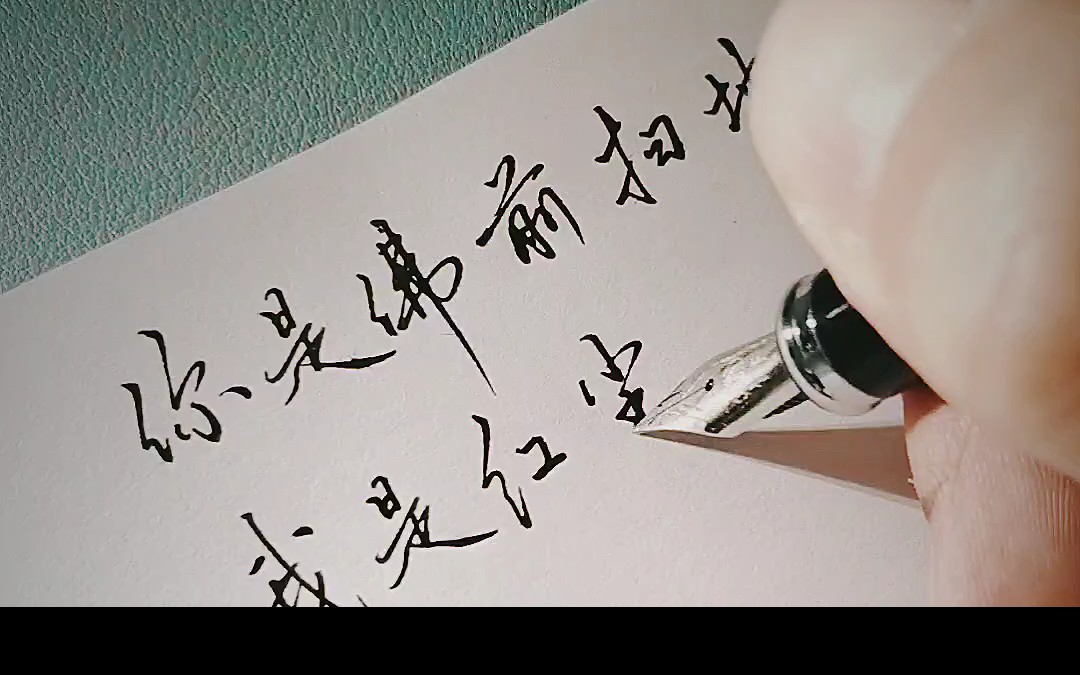 你是佛前扫地
我是红尘